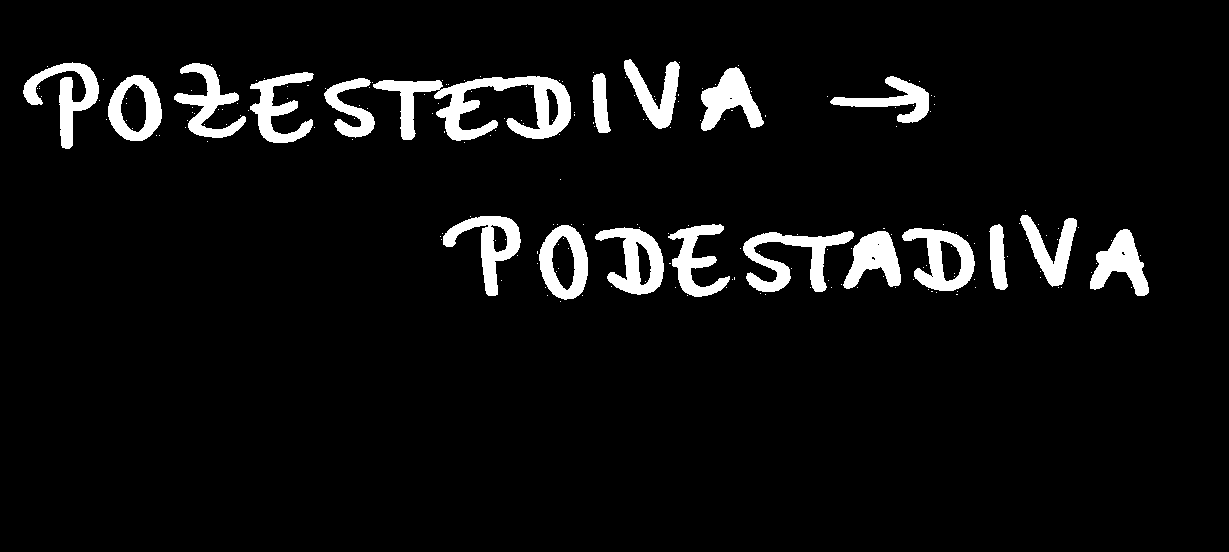 POƵESTEDIVA →
PODESTADIVA